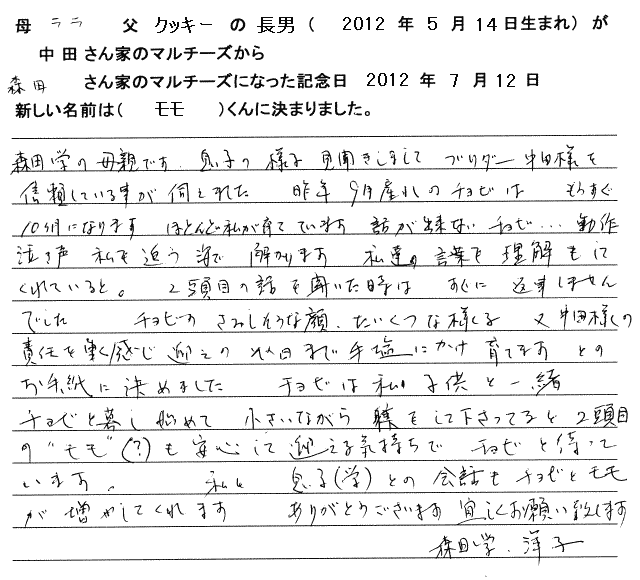 母 ララ 父 クッキー の 長男 ( 2012 年 5 月 14日生まれ) が
中田さん家のマルチーズから
森田 さん家のマルチーズになった記念日 2012 年 7 月 12 日
新しい名前は( モモ )くんに決まりました。
森田学の母親です 息子の様子 見聞きしまして ブリーダー 中田様を
信頼している事が 伺えれた 昨年 9月産れのチョビは もうすぐ
10ヶ月になります ほとんど私が育てています 話が出来ないチョビ… 動作
泣き声 私を追う姿で 解かります 私達の言葉を理解もして
くれていると。 2頭目の話を聞いた時は すぐに 返事しません
でした チョビの さみしそうな顔、たいくつな様子 又 中田様の
責任を重く感じ 迎えの 日まで手塩にかけ育てます との
お手紙に決めました チョビは私の子供と一緒
チョビと暮し始めて 小さいながら 躾をして下さってると 2頭目
の"モモ"(?)も安心して迎える気持ちで チョビと待って
います。 私と 息子(学)との会話もチョビとモモ
が増やしてくれます ありがとうございます 宜しくお願い致します
森田学、洋子